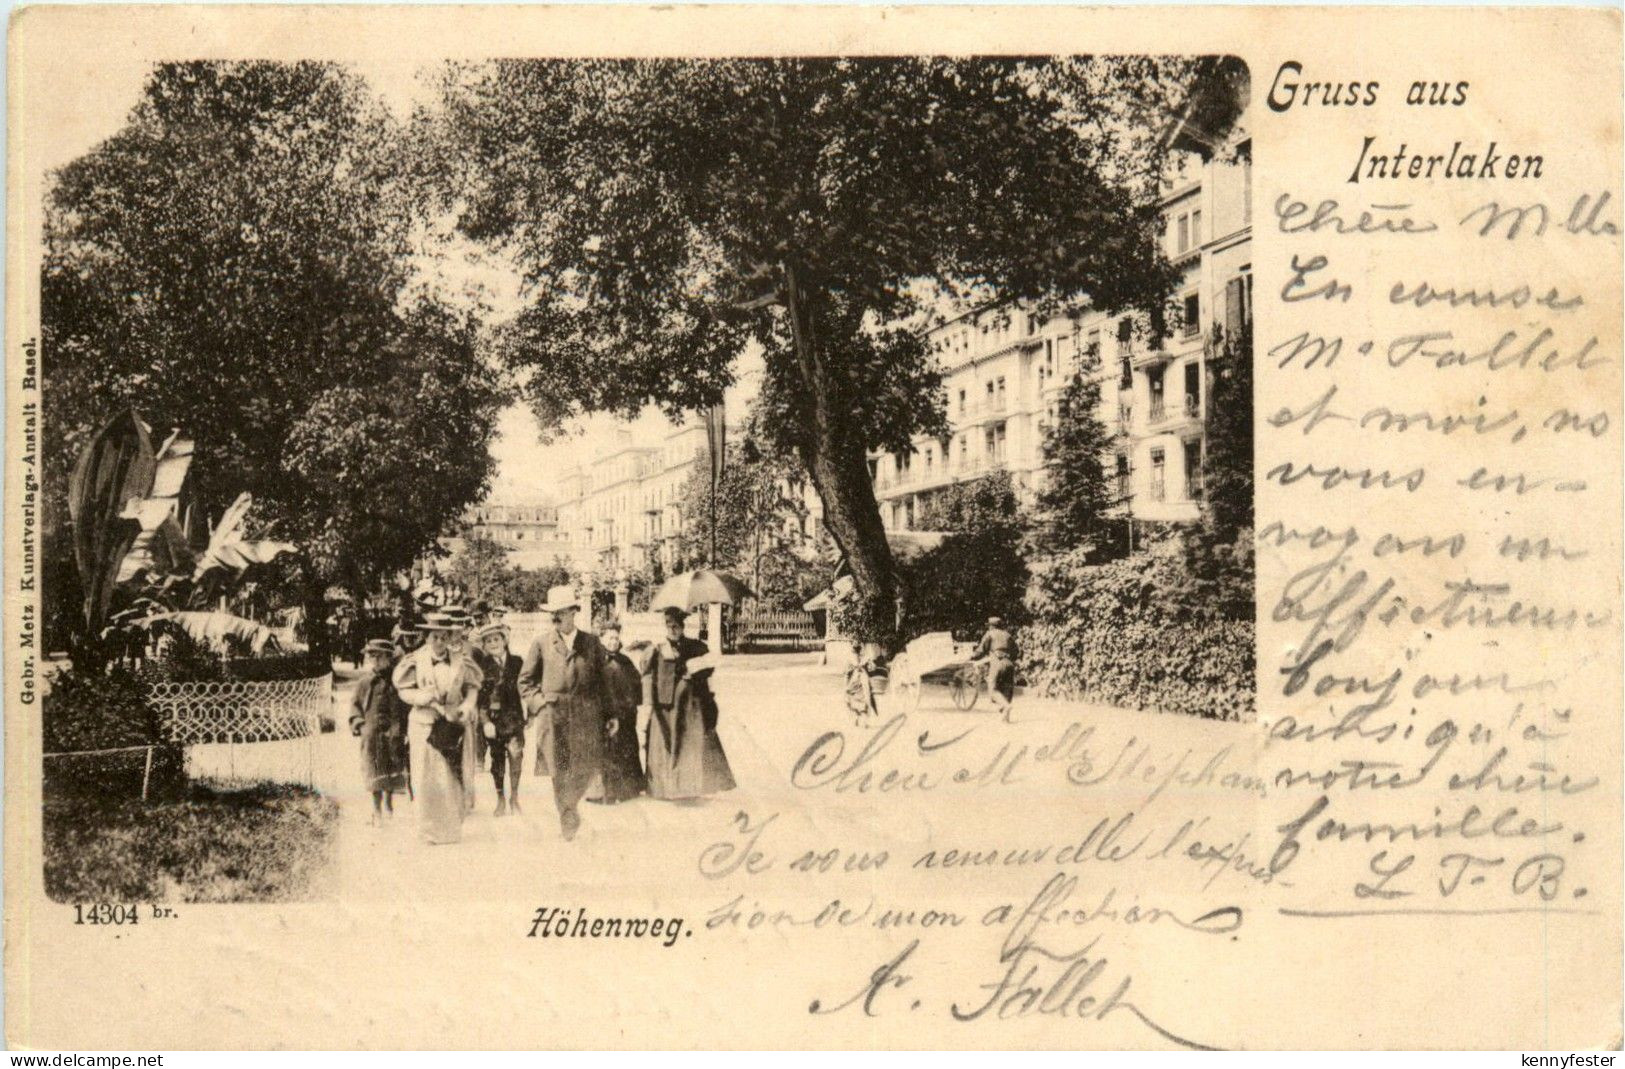 Gruss aus
Interlaken
Chère Mlle
En course
Mr Fallet
et moi, ns
vous en-
voyons un
affectueux
bonjour
ainsi qu'à
votre chère
famille.
L F. B.
Chère Mlle Stéphanie
Je vous renouvelle l'expres-
sion de mon affection
A. Fallet
Höhenweg.
14304 br.
Gebr. Metz Kunstverlags-Anstalt Basel.
delcampe.net
kennyfester